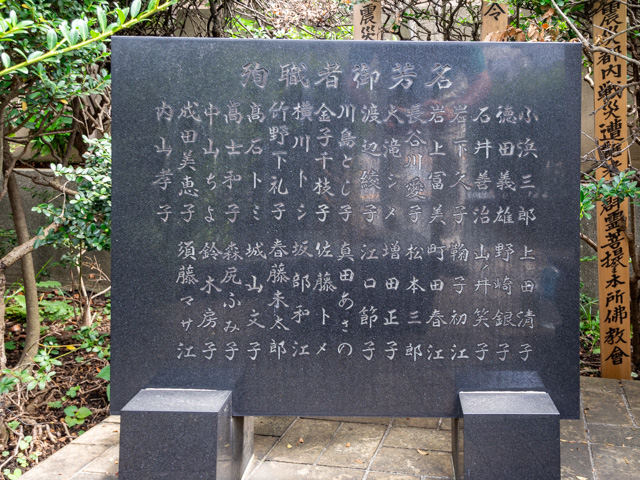 殉職者御芳名
小浜三郎 上田清子
徳田義雄 野崎銀子
石井善治 山ノ井笑子
岩下久子 鞠子初江
岩上富美 町田春江
長谷川愛子 松本三郎
大滝シメ 増田正子
渡辺綾子 江口節子
川島とし子 真田あさの
金子千枝子 佐藤トメ
横川トシ 坂部和江
竹野下礼子 春藤末太郎
高石トミ 城山文子
高士和子 森尻ふみ子
中山ちよ 鈴木房子
成田美恵子 須藤マサ江
内山孝子
都内戦災遭難者
霊菩提 本所佛教會